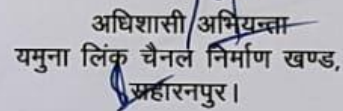 अधिशासी अभियन्ता
यमुना लिंक चैनल निर्माण खण्ड,
सहारनपुर।